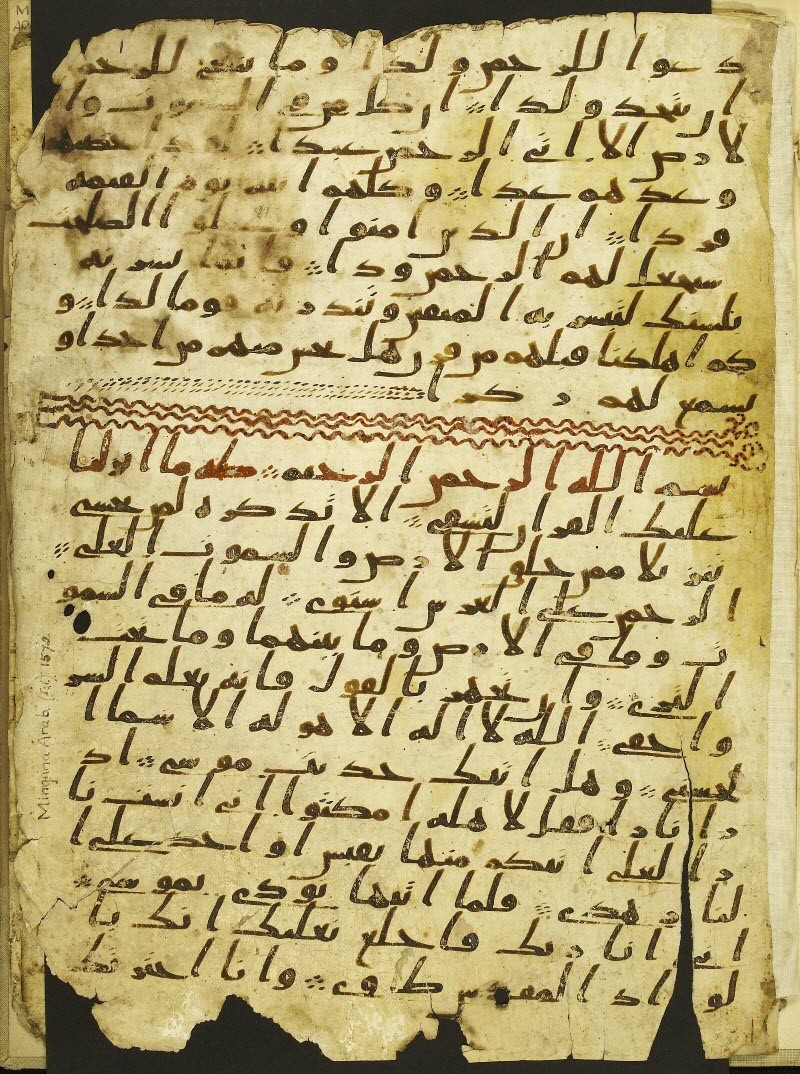 دعوا للرحمن ولدا وما ينبغي للرحمن
ان يتخذ ولدا ان كل من في السموت وا
لارض الا اتي الرحمن عبدا لقد احصيهم
وعدهم عدا وكلهم اتيه يوم القيمه
فردا ان الذين امنوا وعملوا الصلحت
سيجعل لهم الرحمن ودا فانما يسرنه
بلسنك لتبشر به المتقين وتنذر به قوما لدا و
كم اهلكنا قبلهم من قرن هل تحس منهم من احد او
تسمع لهم ركزا
بسم الله الرحمن الرحيم طه ما انزلنا
عليك القران لتشقي الا تذكره لمن يخشي
تنزيلا ممن خلق الارض والسموت العلي
الرحمن علي العرش استوي له ما في السمو
ت وما في الارض وما بينهما وما تحت
الثري وان تجهر بالقول فانه يعلم السر
واخفي الله لا اله الا هو له الاسما ا
لحسني وهل اتيك حديث موسي اذ
را نارا فقل لاهله امكثوا اني انست نا
را لعلي اتيكم منها بقبس او اجد علي ا
لنار هدي فلما اتيها نودي يموسي
اني انا ربك فاخلع نعليك انك با
لواد المقدس طوي وانا اخترتك
Mingana Arab. (Isl.) 1572